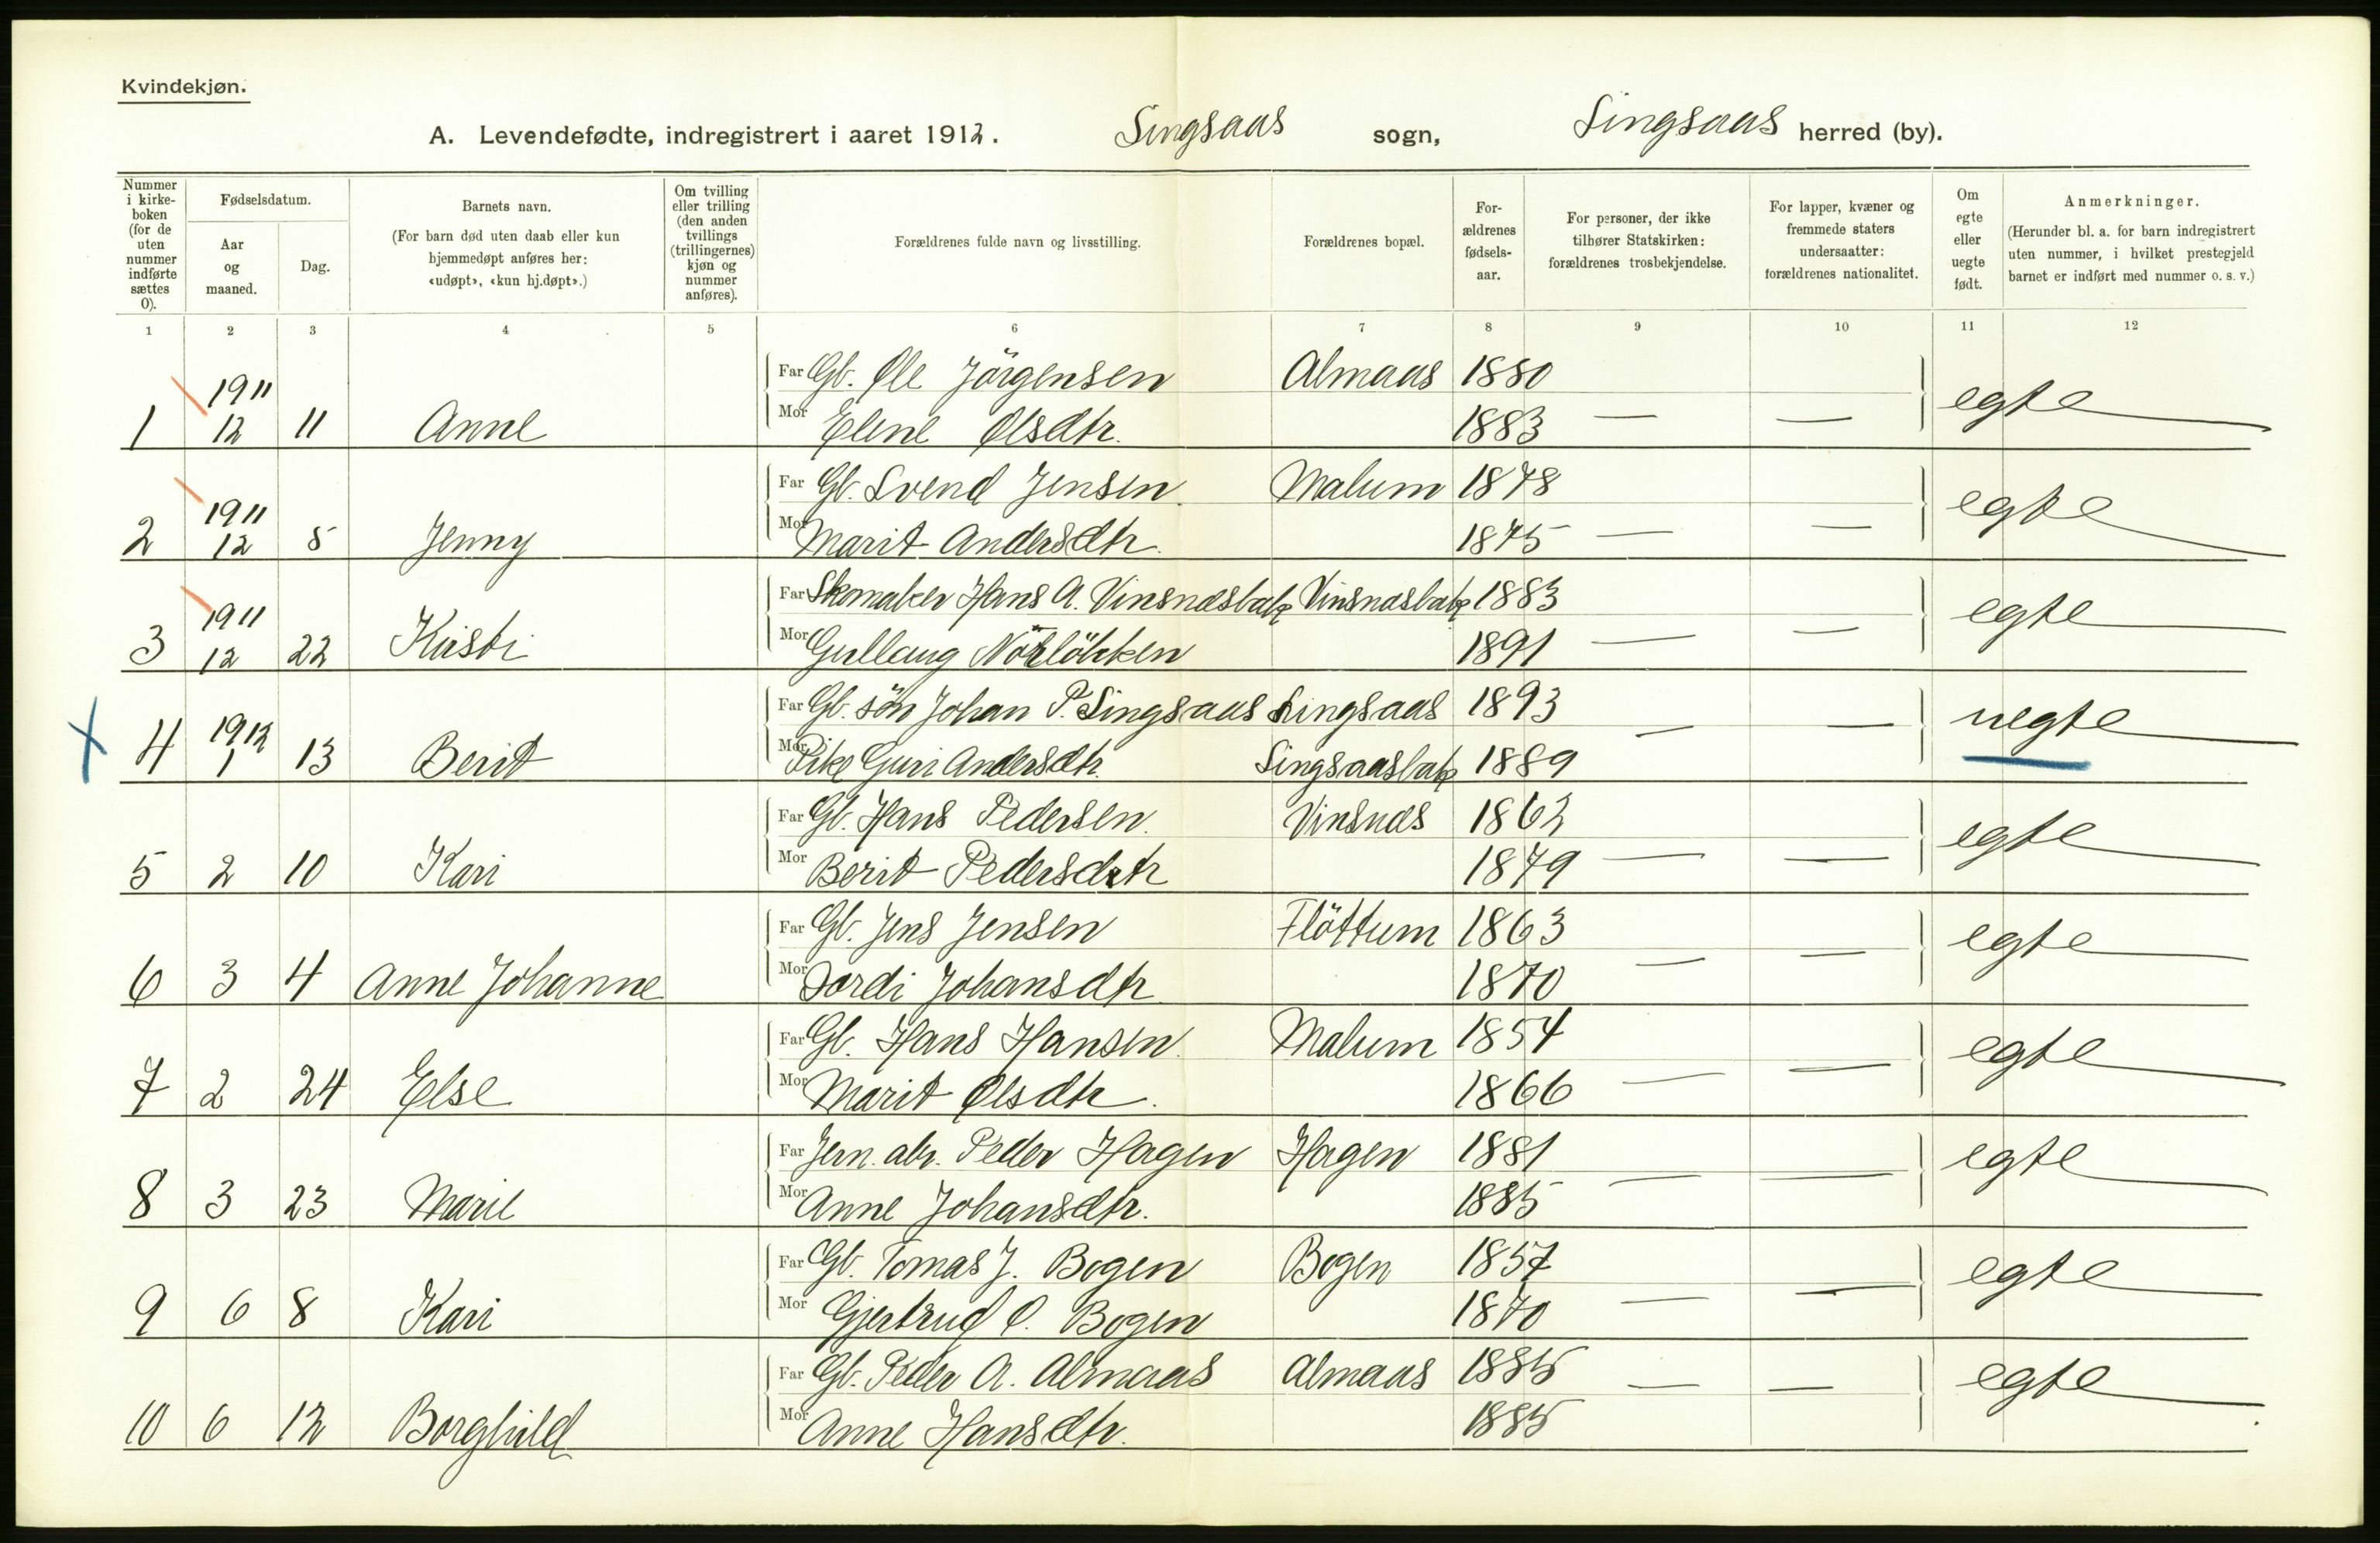 Kvindekjøn.
A. Levendefødte, indregistrert i aaret 1912. Singsaas sogn, Singsaas herred (by).
Nummer i kirke-boken (for de uten nummer indførte sættes 0).
Fødselsdatum.
Aar og maaned.
Dag.
Barnets navn.
(For barn død uten daab eller kun hjemmedøpt anføres her: «udøpt», «kun hj.døpt».)
Om tvilling eller trilling (den anden tvillings (trillingernes) kjøn og nummer anføres).
Forældrenes fulde navn og livsstilling.
Forældrenes bopæl.
For-ældrenes fødsels-aar.
For personer, der ikke tilhører Statskirken: forældrenes trosbekjendelse.
For lapper, kvæner og fremmede staters undersaatter: forældrenes nationalitet.
Om egte eller uegte født.
Anmerkninger.
(Herunder bl. a. for barn indregistrert uten nummer, i hvilket prestegjeld barnet er indført med nummer o. s. v.)
1 2 3 4 5 6 7 8 9 10 11 12
Far Gb. Ole Jörgensen Almaas 1880
1 1911 12 11 Anne Mor Elene Olsdtr. 1883 — — egte
Far Gb. Svend Jensen Malum 1878
2 1911 12 5 Jenny Mor Marit Andersdtr. 1875 — — egte
Far Skomaker Hans A. Vinsnesbak Vinsnesbak 1883
3 1911 12 22 Kristi Mor Gullaug Nörlökken 1891 — — egte
Far Gb. sön Johan P. Singsaas Singsaas 1893
X 4 1912 1 13 Berit Mor Pike Guri Andersdtr. Singsaasbak 1889 — — uegte
Far Gb. Hans Pedersen. Vinsnes 1862
5 2 10 Kari Mor Berit Pedersdtr 1879 — — egte
Far Gb. Jens Jensen Flöttum 1863
6 3 4 Anne Johanne Mor Jordi Johansdtr. 1870 — — egte
Far Gb. Hans Hansen. Malum 1854
7 2 24 Else Mor Marit Olsdtr. 1866 — — egte
Far Jern. abr. Peder Hagen Hagen 1881
8 3 23 Marie Mor Anne Johansdtr. 1885 — — egte
Far Gb. Tomas J. Bogen Bogen 1857
9 6 8 Kari Mor Gjertrud O. Bogen 1870 — — egte
Far Gb. Peder A. Almaas Almaas 1885
10 6 12 Borghild Mor Anne Hansdtr. 1885 — — egte